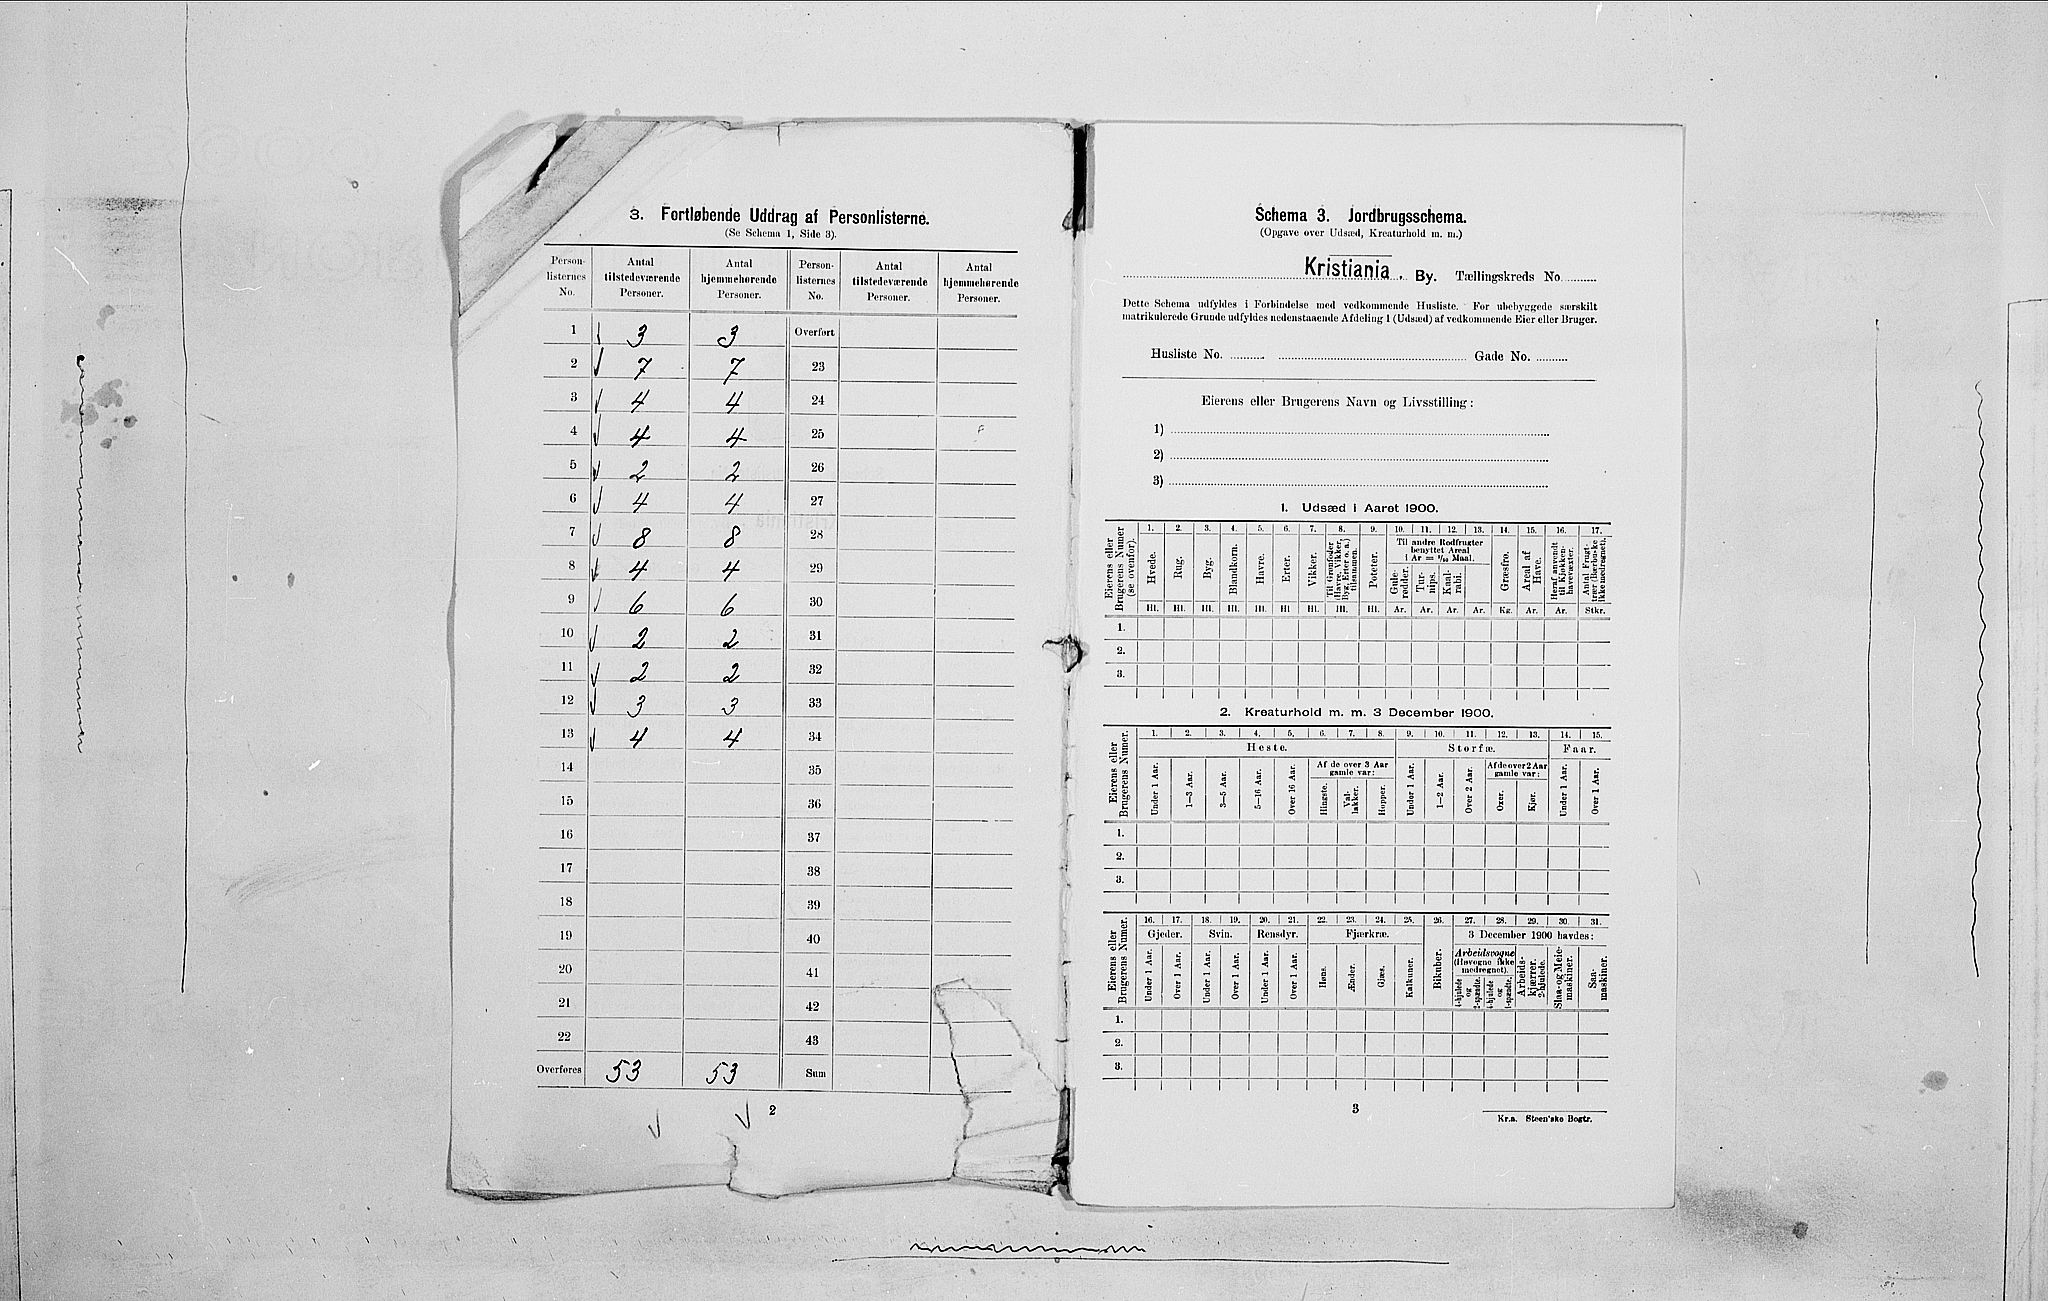 3. Fortløbende Uddrag af Personlisterne.
(Se Schema 1, Side 3).
Person-listernes No. | Antal tilstedeværende Personer. | Antal hjemmehørende Personer. | Person-listernes No. | Antal tilstedeværende Personer. | Antal hjemmehørende Personer.
1 3 3 Overført
2 7 7 23
3 4 4 24
4 4 4 25
5 2 2 26
6 4 4 27
7 8 8 28
8 4 4 29
9 6 6 30
10 2 2 31
11 2 2 32
12 3 3 33
13 4 4 34
14 35
15 36
16 37
17 38
18 39
19 40
20 41
21 42
22 43
Overføres 53 53 Sum
2
Schema 3. Jordbrugsschema.
(Opgave over Udsæd, Kreaturhold m. m.)
Kristiania. By. Tællingskreds No.
Dette Schema udfyldes i Forbindelse med vedkommende Husliste. For ubebyggede særskilt
matrikulerede Grunde udfyldes nedenstaaende Afdeling 1 (Udsæd) af vedkommende Eier eller Bruger.
Husliste No. Gade No.
Eierens eller Brugerens Navn og Livsstilling:
1)
2)
3)
1. Udsæd i Aaret 1900.
Eierens eller Brugerens Numer (se ovenfor).
1. 2. 3. 4. 5. 6. 7. 8. 9. 10. 11. 12. 13. 14. 15. 16. 17.
Hvede. Rug. Byg. Blandkorn. Havre. Erter. Vikker. Til Grønfoder (Havre, Vikker, Byg, Erter o. a.) tilsammen. Poteter.
Til andre Rodfrugter benyttet Areal 1 Ar = 1/10 Maal.
Gule-rødder. Tur-nips. Kaal-rabi. Græsfrø. Areal af Have. Heraf anvendt til Kjøkken-havevæxter. Antal Frugt-trær (Bærbuske ikke medregnet).
Hl. Hl. Hl. Hl. Hl. Hl. Hl. Hl. Hl. Ar. Ar. Ar. Ar. Kg. Ar. Ar. Stkr.
1.
2.
3.
2. Kreaturhold m. m. 3 December 1900.
Eierens eller Brugerens Numer.
1. 2. 3. 4. 5. 6. 7. 8. 9. 10. 11. 12. 13. 14. 15.
Heste. Storfæ. Faar.
Af de over 3 Aar gamle var: Af de over 2 Aar gamle var:
Under 1 Aar. 1—3 Aar. 3—5 Aar. 5—16 Aar. Over 16 Aar. Hingste. Val-lakker. Hopper. Under 1 Aar. 1—2 Aar. Over 2 Aar. Oxer. Kjør. Under 1 Aar. Over 1 Aar.
1.
2.
3.
Eierens eller Brugerens Numer.
16. 17. 18. 19. 20. 21. 22. 23. 24. 25. 26. 27. 28. 29. 30. 31.
Gjeder. Svin. Rensdyr. Fjærkræ. Bikuber. 3 December 1900 havdes:
Arbeidsvogne (Høvogne ikke medregnet).
Under 1 Aar. Over 1 Aar. Under 1 Aar. Over 1 Aar. Under 1 Aar. Over 1 Aar. Høns. Ænder. Gjæs. Kalkuner. 4-hjulede og 2-spændte. 4-hjulede og 1-spændte. Arbeids-kjærrer. 2-hjulede. Slaa- og Meie-maskiner. Saa-maskiner.
1.
2.
3.
3
Kr.a. Steen'ske Bogtr.